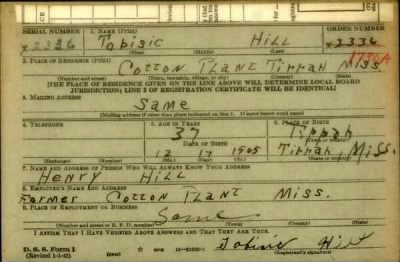 SERIAL NUMBER 1. NAME (Print) ORDER NUMBER
Tobisic Hill
(First) (Middle) (Last)
2. PLACE OF RESIDENCE (Print)
Cotton Plant Tippah Miss.
(Number and street) (Town, township, village, or city) (County) (State)
[THE PLACE OF RESIDENCE GIVEN ON THE LINE ABOVE WILL DETERMINE LOCAL BOARD
JURISDICTION; LINE 2 OF REGISTRATION CERTIFICATE WILL BE IDENTICAL]
3. MAILING ADDRESS
Same
[Mailing address if other than place indicated on line 2. If same insert word same]
4. TELEPHONE 5. AGE IN YEARS
37 Tippah
DATE OF BIRTH
12 17 1905 Tippah, Miss.
(Exchange) (Number) (Mo.) (Day) (Yr.) (State or country)
7. NAME AND ADDRESS OF PERSON WHO WILL ALWAYS KNOW YOUR ADDRESS
Henry Hill
8. EMPLOYER'S NAME AND ADDRESS
Farmer Cotton Plant Miss.
9. PLACE OF EMPLOYMENT OR BUSINESS
Same
(Number and street or R. F. D. number) (Town) (County) (State)
I AFFIRM THAT I HAVE VERIFIED ABOVE ANSWERS AND THAT THEY ARE TRUE.
D. S. S. Form 1 Hill
(Revised (Registrant's signature)